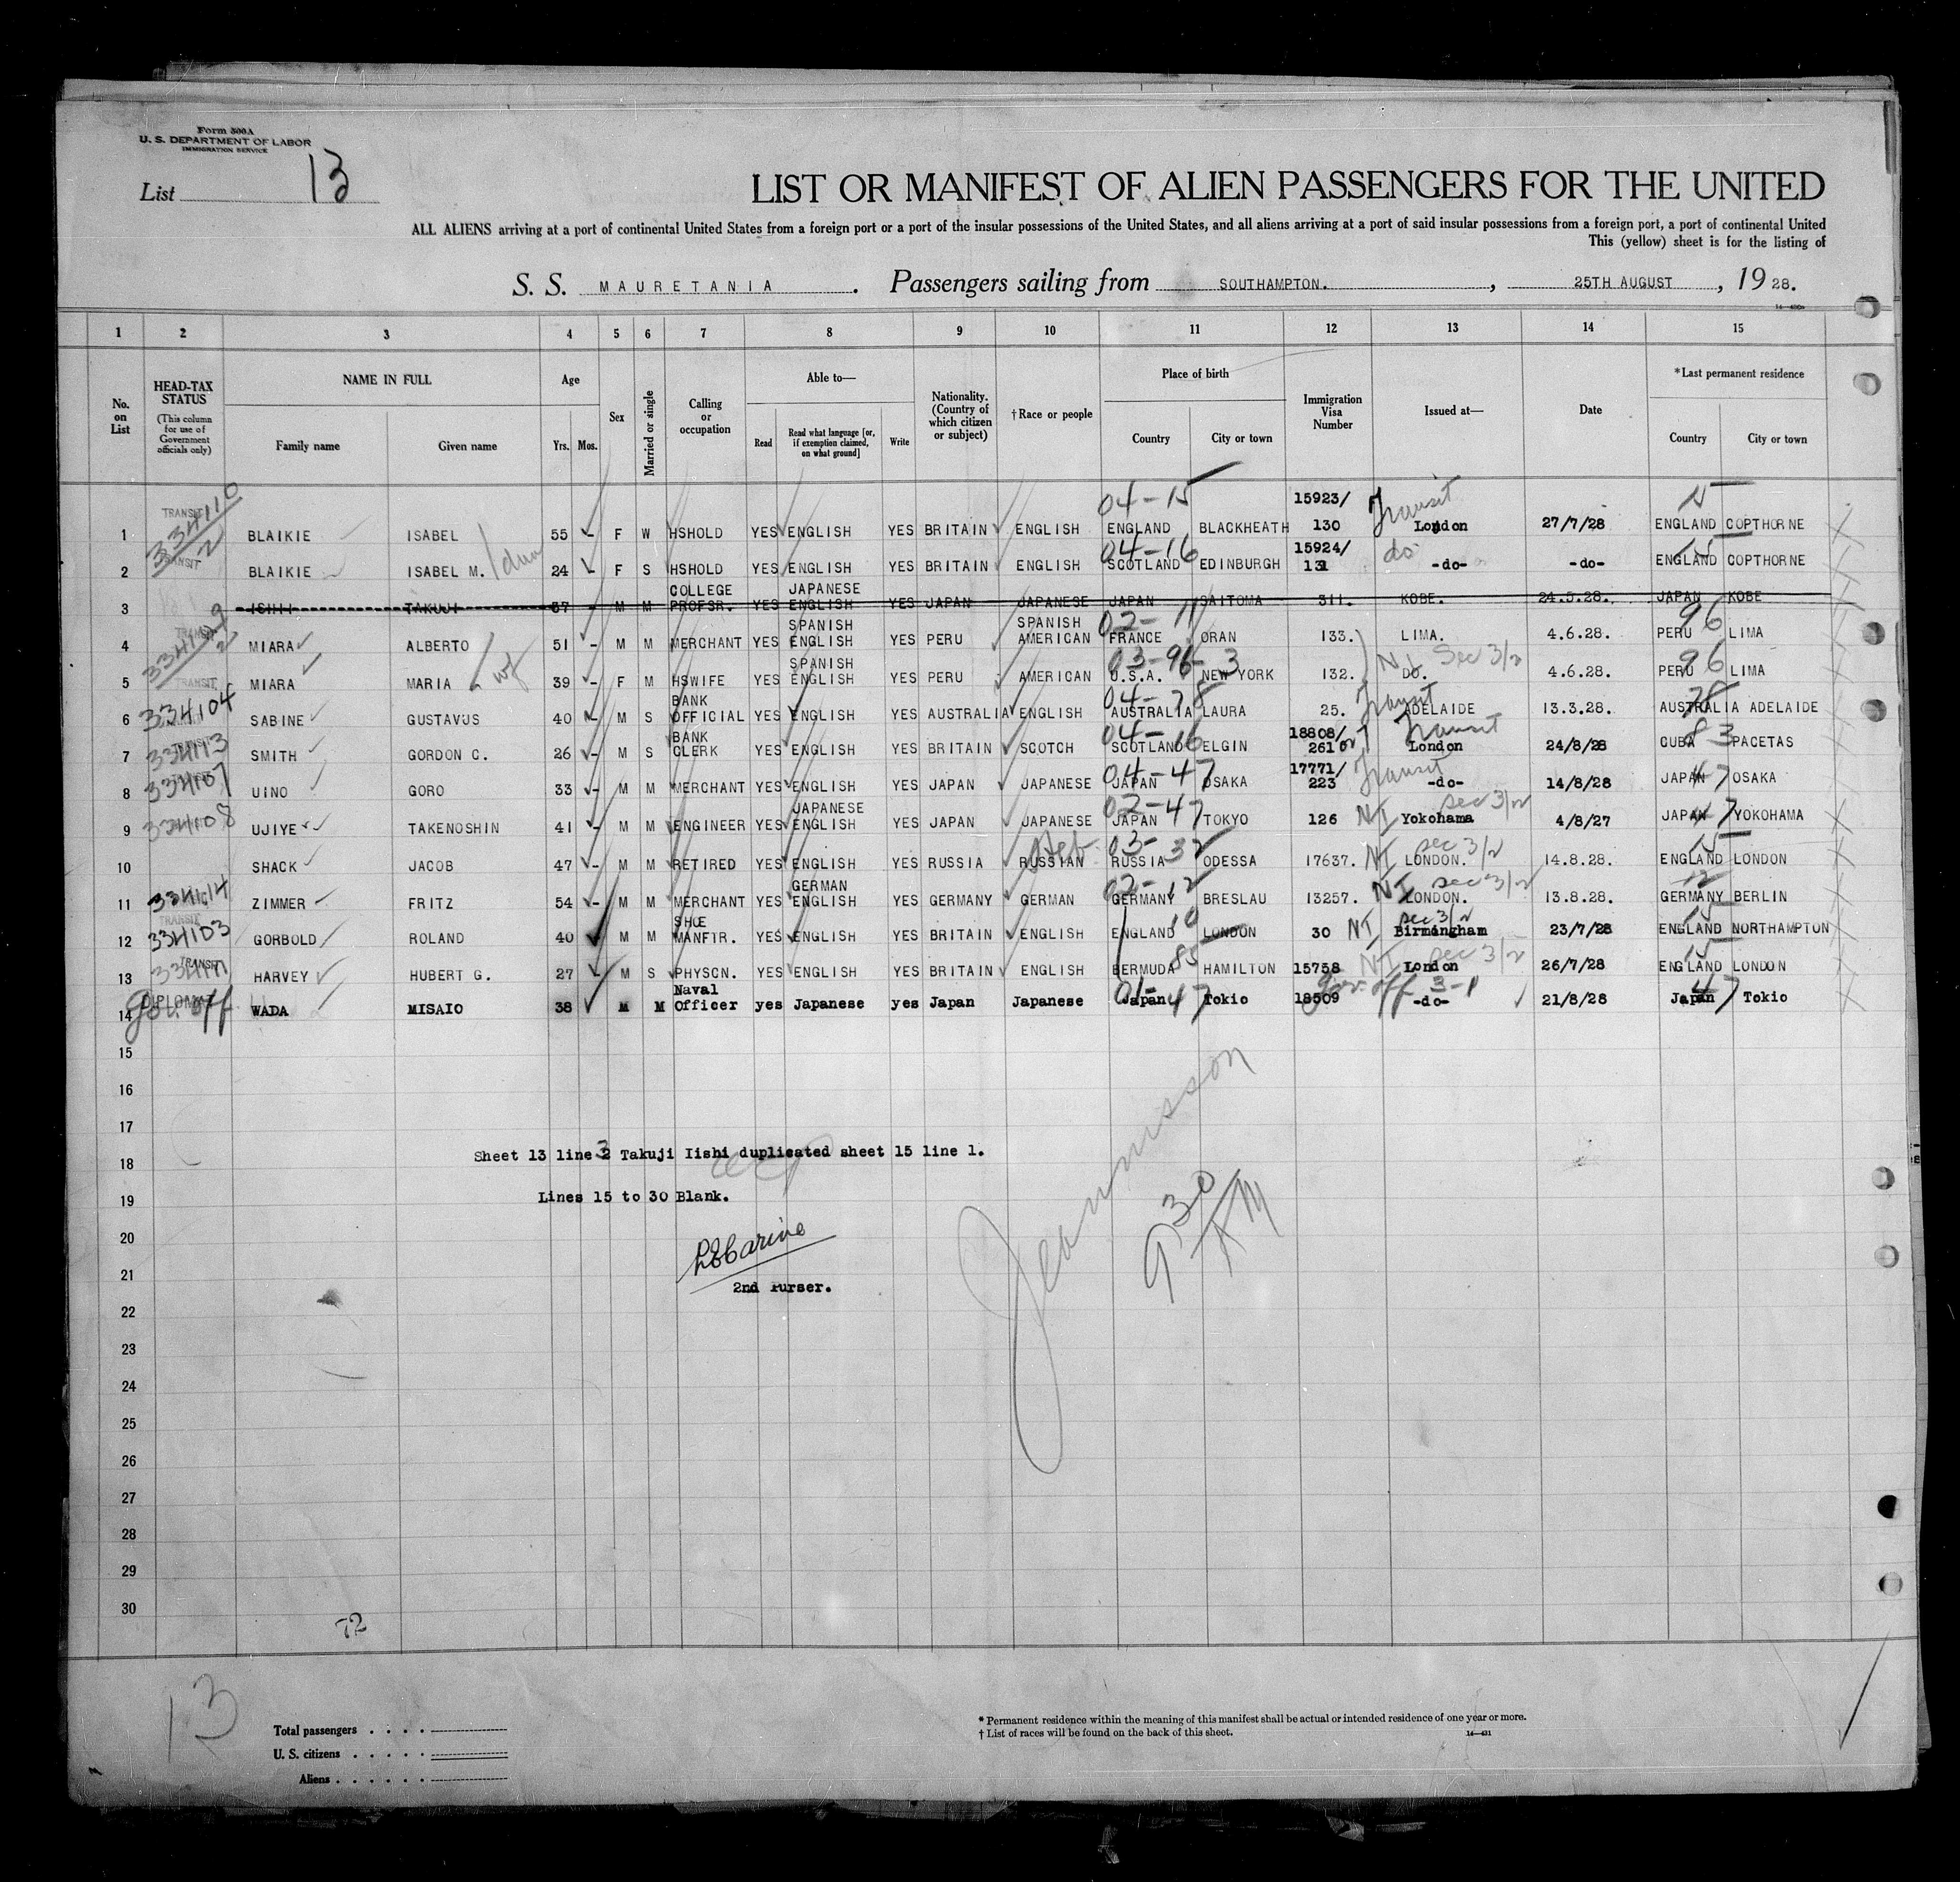 Form 500A
U. S. DEPARTMENT OF LABOR
IMMIGRATION SERVICE
List 13
LIST OR MANIFEST OF ALIEN PASSENGERS FOR THE UNITED
ALL ALIENS arriving at a port of continental United States from a foreign port or a port of the insular possessions of the United States, and all aliens arriving at a port of said insular possessions from a foreign port, a port of continental United
This (yellow) sheet is for the listing of
S. S. MAURETANIA. Passengers sailing from SOUTHAMPTON., 25TH AUGUST, 1928.
1 2 3 4 5 6 7 8 9 10 11 12 13 14 15
No. on List
HEAD-TAX STATUS
(This column for use of Government officials only)
NAME IN FULL
Family name Given name
Age
Yrs. Mos.
Sex
Married or single
Calling or occupation
Able to—
Read
Read what language [or, if exemption claimed, on what ground]
Write
Nationality. (Country of which citizen or subject)
†Race or people
Place of birth
Country City or town
Immigration Visa Number
Issued at—
Date
*Last permanent residence
Country City or town
04-15 15923/ Transit 15
TRANSIT 334110
1 BLAIKIE ISABEL 55 F W HSHOLD YES ENGLISH YES BRITAIN ENGLISH ENGLAND BLACKHEATH 130 London 27/7/28 ENGLAND COPTHORNE
2 TRANSIT 04-16 15924/ do 15
2 BLAIKIE ISABEL M. 24 F S HSHOLD YES ENGLISH YES BRITAIN ENGLISH SCOTLAND EDINBURGH 131 -do- -do- ENGLAND COPTHORNE
COLLEGE JAPANESE
3 ISHII TAKUJI 37 M M PROFSR. YES ENGLISH YES JAPAN JAPANESE JAPAN SAITOMA 311. KOBE. 24.5.28. JAPAN KOBE
TRANSIT SPANISH SPANISH 02-11 96
4 MIARA ALBERTO 51 M M MERCHANT YES ENGLISH YES PERU AMERICAN FRANCE ORAN 133. LIMA. 4.6.28. PERU LIMA
TRANSIT SPANISH 03-96-3 NI Sec 3/2 96
5 MIARA MARIA wf 39 F M HSWIFE YES ENGLISH YES PERU AMERICAN U.S.A. NEW YORK 132. DO. 4.6.28. PERU LIMA
334104 BANK 04-78 Transit 78
6 SABINE GUSTAVUS 40 M S OFFICIAL YES ENGLISH YES AUSTRALIA ENGLISH AUSTRALIA LAURA 25. ADELAIDE 13.3.28. AUSTRALIA ADELAIDE
334113 BANK 04-16 18808/ Transit 83
7 SMITH GORDON C. 26 M S CLERK YES ENGLISH YES BRITAIN SCOTCH SCOTLAND ELGIN 261 London 24/8/28 CUBA PACETAS
334107 04-47 17771/ Transit 47
8 UINO GORO 33 M M MERCHANT YES ENGLISH YES JAPAN JAPANESE JAPAN OSAKA 223 -do- 14/8/28 JAPAN OSAKA
334108 JAPANESE 02-47 NI sec 3/2 47
9 UJIYE TAKENOSHIN 41 M M ENGINEER YES ENGLISH YES JAPAN JAPANESE JAPAN TOKYO 126 Yokohama 4/8/27 JAPAN YOKOHAMA
Heb 03-32 NI sec 3/2 15
10 SHACK JACOB 47 M M RETIRED YES ENGLISH YES RUSSIA RUSSIAN RUSSIA ODESSA 17637. LONDON. 14.8.28. ENGLAND LONDON
334114 GERMAN 02-12 NI sec 3/2 12
11 ZIMMER FRITZ 54 M M MERCHANT YES ENGLISH YES GERMANY GERMAN GERMANY BRESLAU 13257. LONDON. 13.8.28. GERMANY BERLIN
TRANSIT 334103 SHOE NI sec 3/2 15
12 GORBOLD ROLAND 40 M M MANFTR. YES ENGLISH YES BRITAIN ENGLISH ENGLAND LONDON 30 Birmingham 23/7/28 ENGLAND NORTHAMPTON
TRANSIT 85 NI sec 3/2 15
13 HARVEY HUBERT G. 27 M S PHYSCN. YES ENGLISH YES BRITAIN ENGLISH BERMUDA HAMILTON 15758 London 26/7/28 ENGLAND LONDON
DIPLOMAT Gov. off Naval 01-47 Gov. off 3-1 47
14 WADA MISAIO 38 M M Officer yes Japanese yes Japan Japanese Japan Tokio 18509 -do- 21/8/28 Japan Tokio
15
16
17
Sheet 13 line 3 Takuji Iishi duplicated sheet 15 line 1.
18
Lines 15 to 30 Blank.
19
20
21
2nd Purser.
22
23
24
25
26
27
28
29
30
Jeannisson
9 30 AM
72
13
Total passengers
U. S. citizens
Aliens
* Permanent residence within the meaning of this manifest shall be actual or intended residence of one year or more.
† List of races will be found on the back of this sheet.
14—431